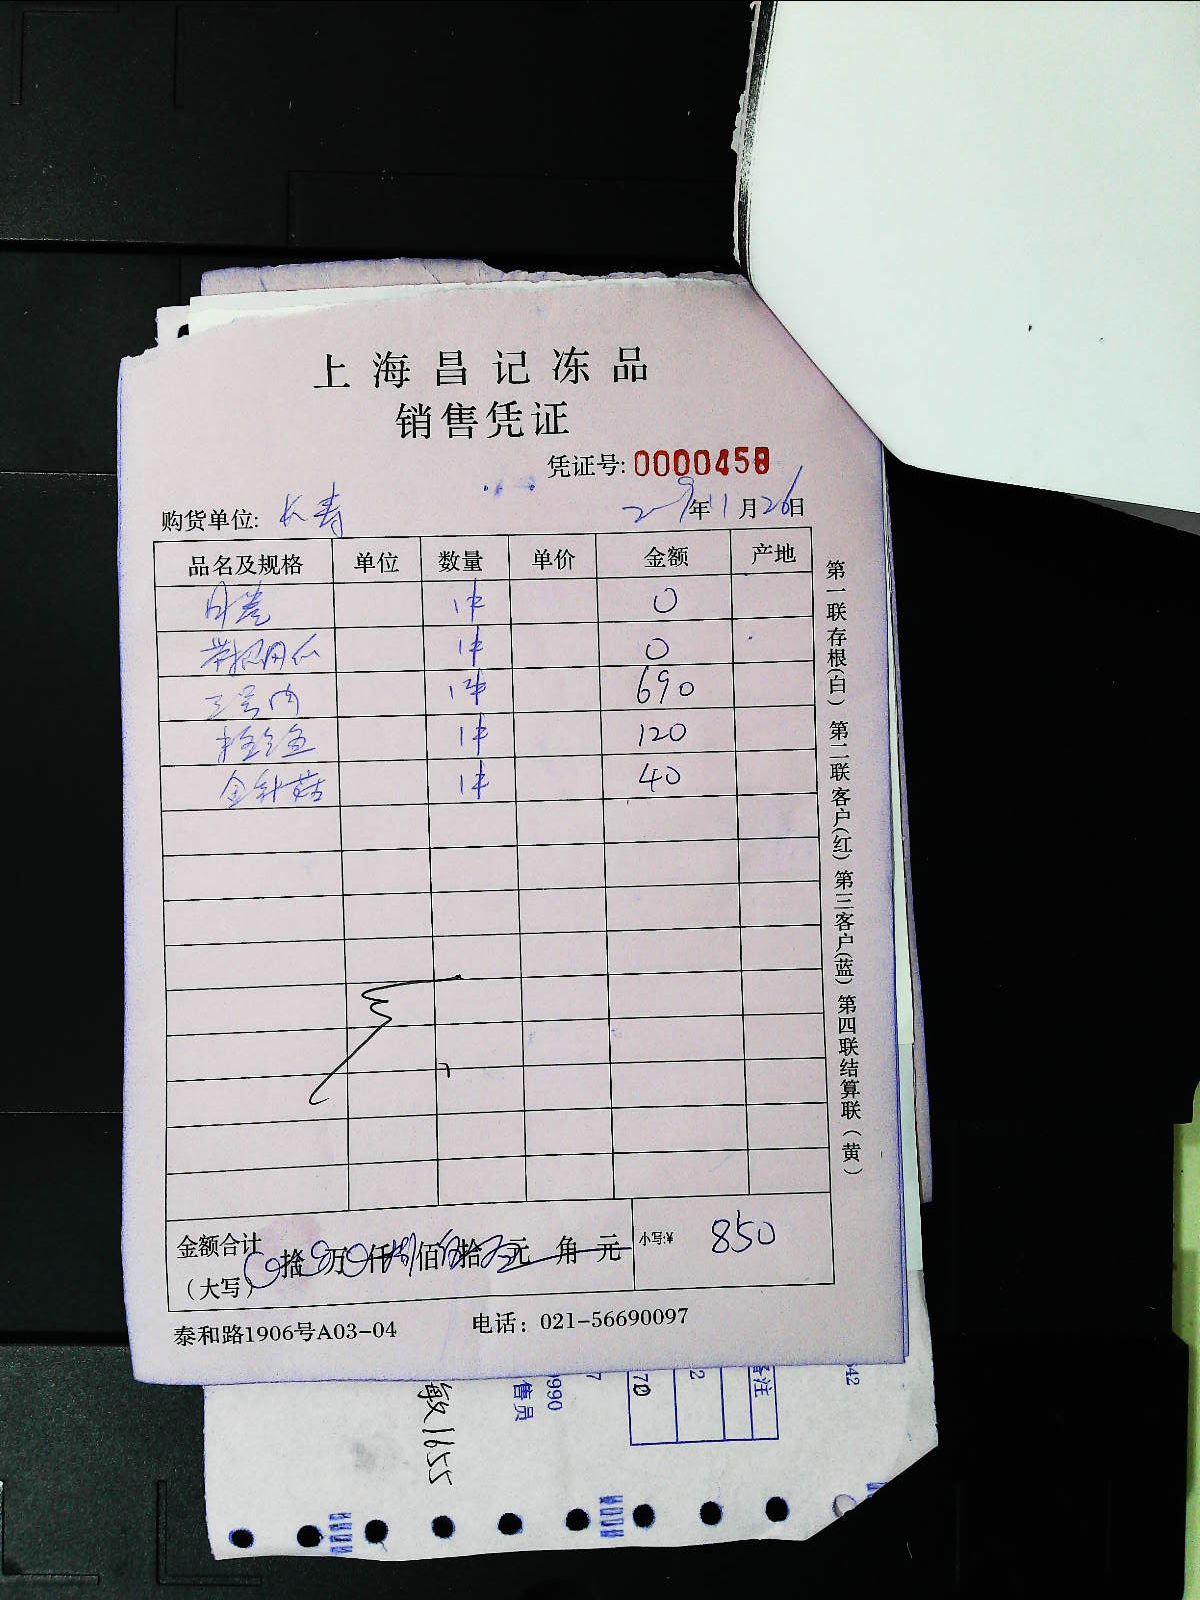 上海昌记冻品
销售凭证
凭证号: 0000458
购货单位: 长寿 年11月26日
品名及规格 单位 数量 单价 金额 产地
1件 0
1件 0
三号肉 1件 690
1件 120
金针菇 1件 40
金额合计
(大写) 拾 万 仟 捌佰 伍拾 元 角 元 小写:¥ 850
泰和路1906号A03-04 电话: 021-56690097
第一联存根(白) 第二联客户(红) 第三客户(蓝) 第四联结算联(黄)
敏1655
售员
990
7
70
2
备注
42